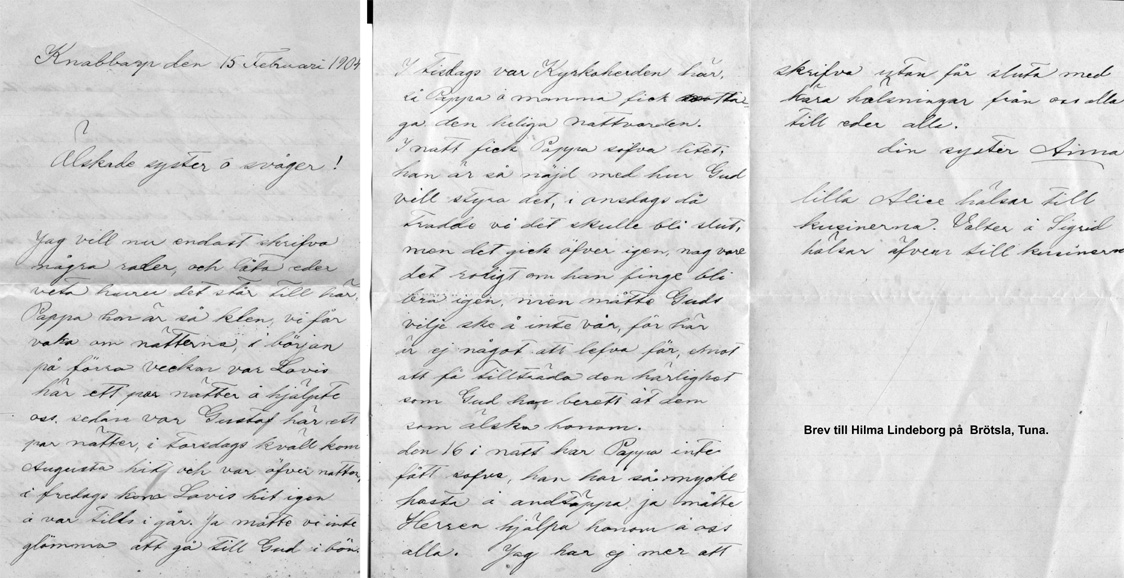 Knabbarp den 15 Februari 1904
Älskade syster o svåger!
Jag vill nu endast skrifva
några rader, och låta eder
veta huru det står till här,
Pappa han är så klen, vi får
vaka om nätterna, i början
på förra veckan var Lovis
här ett par nätter å hjälpte
oss, sedan var Gustaf här ett
par nätter, i Torsdags kväll kom
Augusta hit, och var öfver natten,
i fredags kom Lovis hit igen
å var tills i går. Ja måtte vi inte
glömma att gå till Gud i bön.
I tisdags var Kyrkoherden här,
så Pappa å mamma fick motta-
ga den heliga nattvarden.
I natt fick Pappa sofva litet,
han är så nöjd med hur Gud
vill styra det, i onsdags då
trodde vi det skulle bli slut,
men det gick öfver igen, nog vore
det roligt om han finge bli
bra igen, men måtte Guds
vilje ske å inte vår, för här
är ej något att lefva för, emot
att få tillträda den härlighet
som Gud har berett åt dem
som älska honom.
den 16 i natt har Pappa inte
fått sofva, han har så mycke
hosta å andtäppa, ja måtte
Herren hjälpa honom å oss
alla. Jag har ej mer att
skrifva utan får sluta med
kära hälsningar från oss alla
till eder alla.
din syster Anna
lilla Alice hälsar till
kusinerna. Valter å Sigrid
hälsar äfven till kusinerna
Brev till Hilma Lindeborg på Brötsla, Tuna.